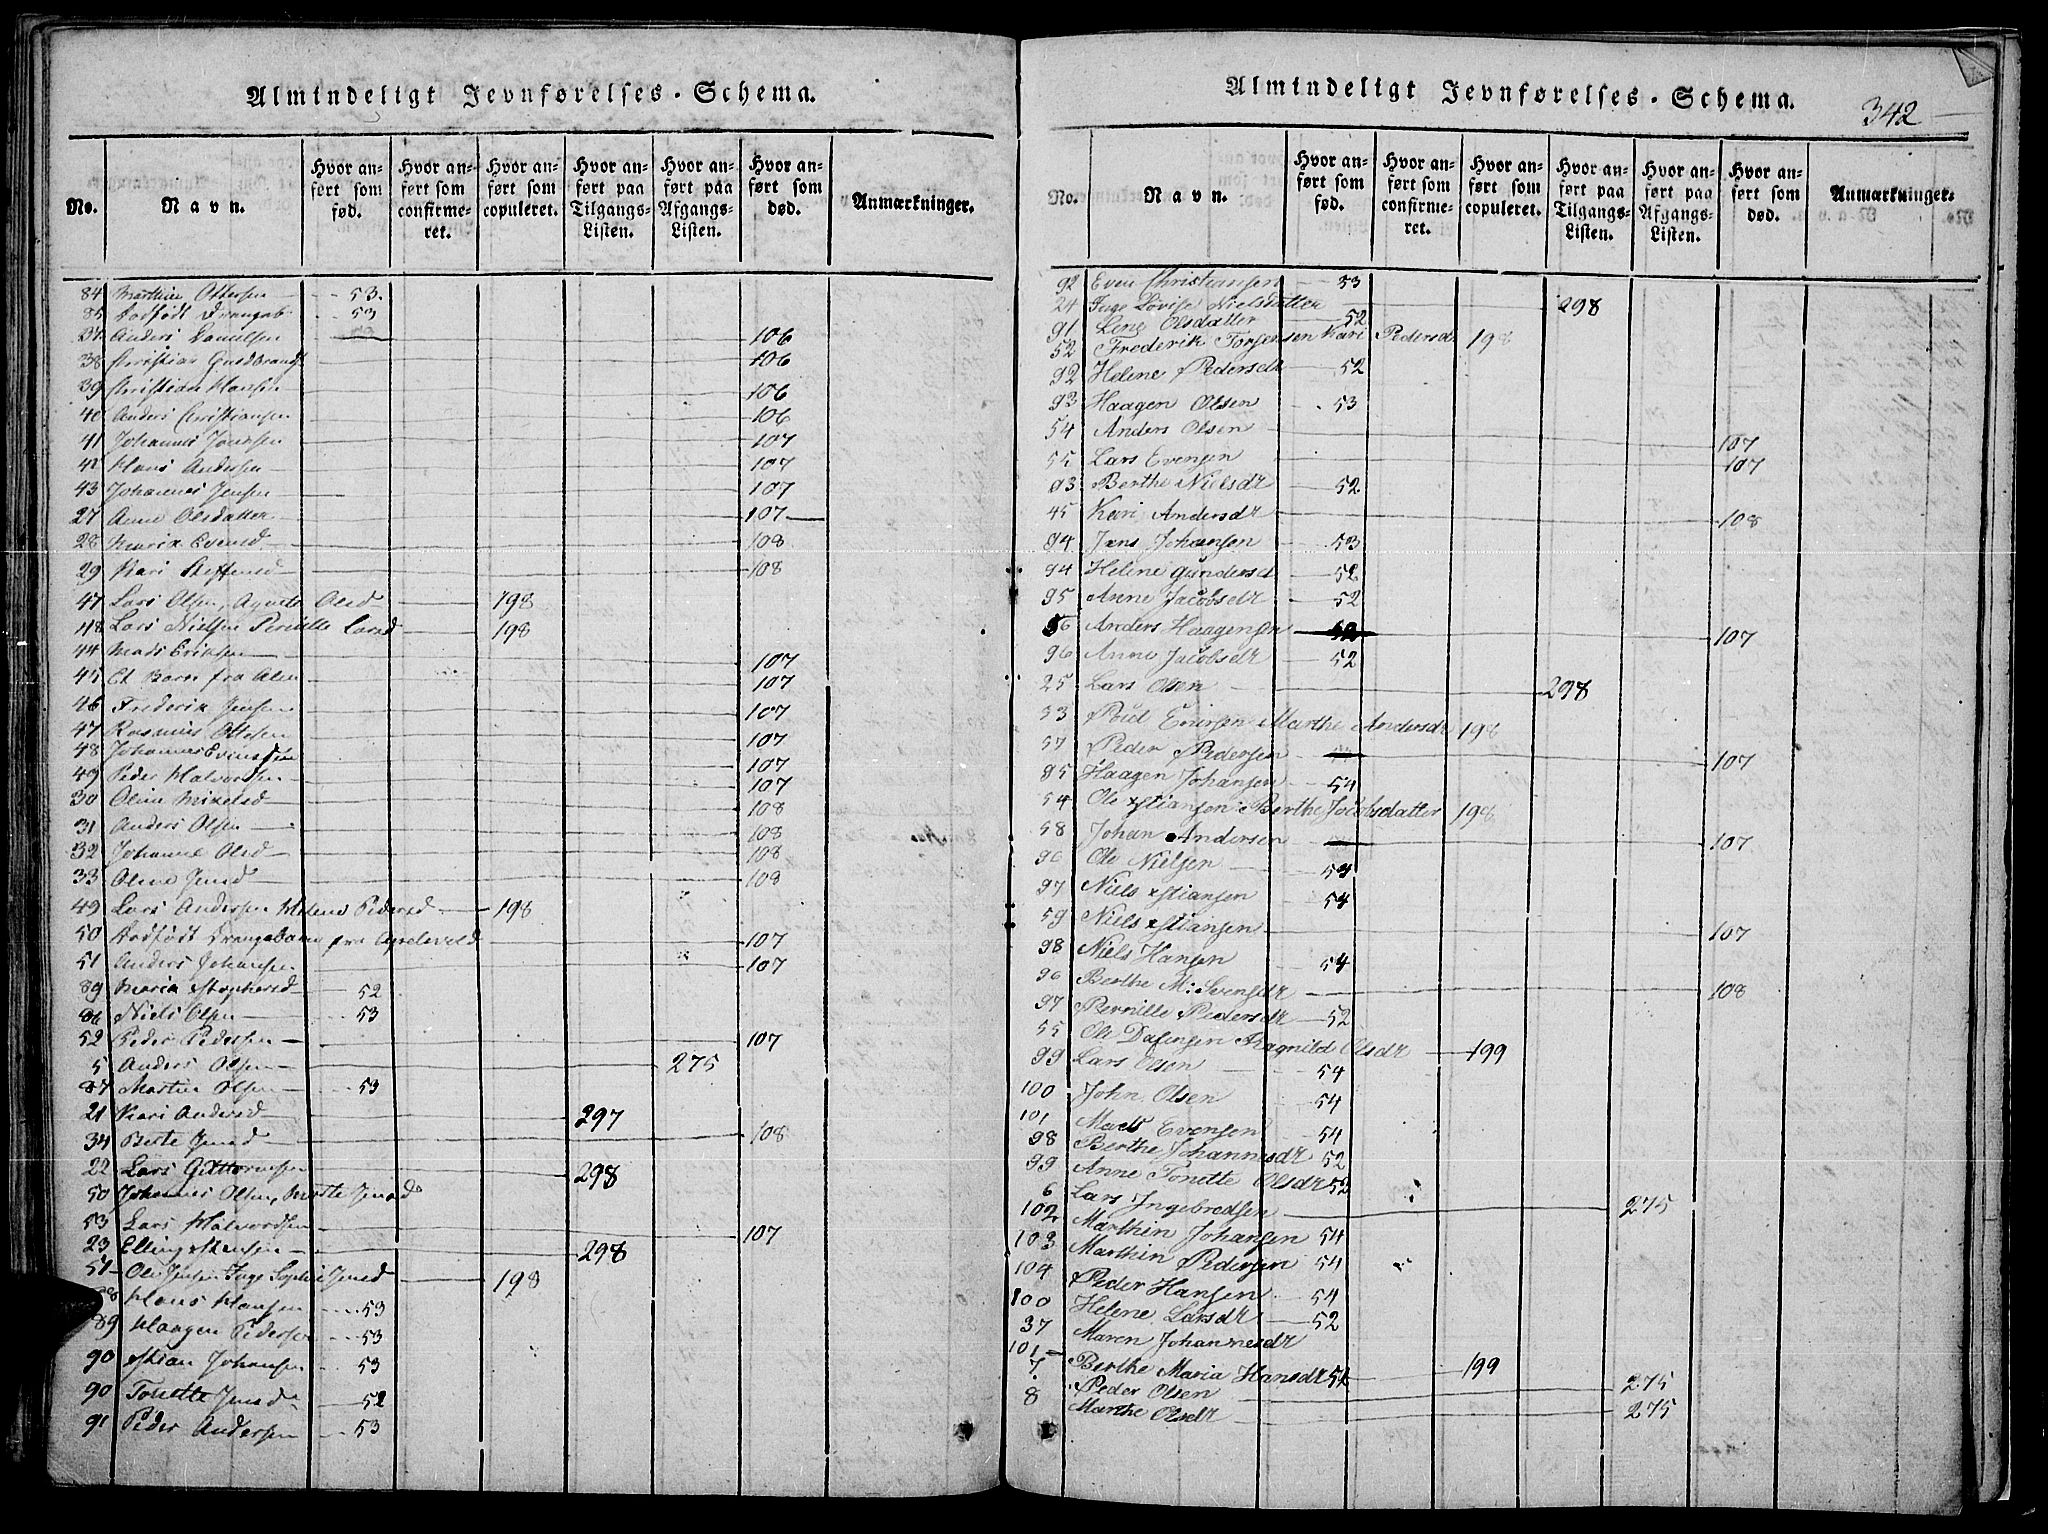 Almindeligt Jevnførelses-Schema.
No. Navn. Hvor anført som fød. Hvor anført som confirmeret. Hvor anført som copuleret. Hvor anført paa Tilgangs-Listen. Hvor anført paa Afgangs-Listen. Hvor anført som død. Anmærkninger.
84 Marthin Ottersen 53.
85 dødfødt Drengeb. 53
37 Anders Danielsen 106
38 Christian Guldbrands 106
39 Christian Hansen 106
40 Anders Christiansen 106
41 Johannes 107
42 Hans Andersen 107
43 Johannes Jensen 107
27 Anne Olsdatter 107
28 Maria Evensd 108
29 Kari Steffensd 108
47 Lars Olsen, Agnete Olsd 198
48 Lars Nielsen Pernille Larsd 198
44 Mads Eriksen 107
45 Et Barn fra 107
46 Frederik Jensen 107
47 Rasmus Ottesen 107
48 Johannes Evensen 107
49 Peder Halvorsen 107
30 Oline Mikelsd 108
31 Anders Olsen 108
32 Johanne Olsd 108
33 Oline Jensd 108
49 Lars Andersen Helene Pedersd 198
50 dødfødt Drengebarn fra 107
51 Anders Johansen 107
89 Maria Stophersd 52
86 Niels Olsen 53
52 Peder Pedersen 107
5 Anders Olsen 275
87 Martin Olsen 53
21 Kari Andersd 297
34 Berte Jensd 108
22 Lars Guttormsen 298
50 Johannes Olsen, Marte Jensd
53 Lars Halvordsen 107
23 Elling 298
51 Ole Jensen Inge Sophie Jensd 198
88 Hans Hansen 53
89 Haagen Pedersen 53
90 Xstian Johansen 53
90 Tonette Jensd 52
91 Peder Andersen 53
Almindeligt Jevnførelses-Schema.
342
No. Navn. Hvor anført som fød. Hvor anført som confirmeret. Hvor anført som copuleret. Hvor anført paa Tilgangs-Listen. Hvor anført paa Afgangs-Listen. Hvor anført som død. Anmærkninger.
92 Even Christiansen 53
24 Inge Lovise Nielsdatter 298
91 Lene Olsdatter 52
52 Frederik Torgersen Kari Pedersd 198
92 Helene Pedersdr 52
93 Haagen Olsen 53
54 Anders Olsen 107
55 Lars Evensen 107
93 Berthe Nielsdr 52
45 Kari Andersdr 108
94 Jens Johansen 53
94 Helene Gundersd 52
95 Anne Jacobsdr 52
56 Anders Haagensen 52 107
96 Anne Jacobsdr 52
25 Lars Olsen 298
53 Poul Marthe Andersdr 198
57 Peder Pedersen 107
95 Haagen Johansen 54
54 Ole Xstiansen Berthe Jacobsdatter 198
58 Johan Andersen 107
96 Ole Nielsen 54
97 Niels Xstiansen 54
59 Niels Xstiansen 107
98 Niels Hansen 54
96 Berthe M: Svensdr 108
97 Pernille Pedersdr 52
55 Ole Dafinsen Ragnild Olsdr 199
99 Lars Olsen 54
100 John Olsen 54
101 Mads Evensen 54
98 Berthe Johannesdr 52
99 Anne Tonette Olsdr 52
6 Lars Ingebredsen 275
102 Marthin Johansen 54
103 Marthin Pedersen 54
104 Peder Hansen 54
100 Helene Larsdr 52
37 Maren Johannesdr
101 Berthe Maria Hansdr 52 199
7 Peder Olsen 275
8 Marthe Olsdr 275